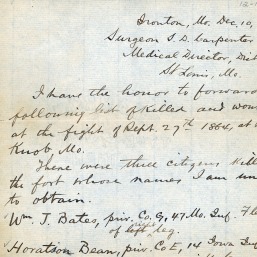 12-
Ironton, Mo. Dec. 10,
Surgeon S. D. Carpenter
Medical Director, Dist
St Louis, Mo.
I have the honor to forward
following list of killed and wou
at the fight of Sept. 27th 1864, at
Knob, Mo.
There were three citizens kill
the fort whose names I am un
to obtain.
Wm T. Bates, priv. Co. G, 47 Mo. Inf. Fle
of right leg.
Horatson Bean, priv. Co E, 14 Iowa Inf